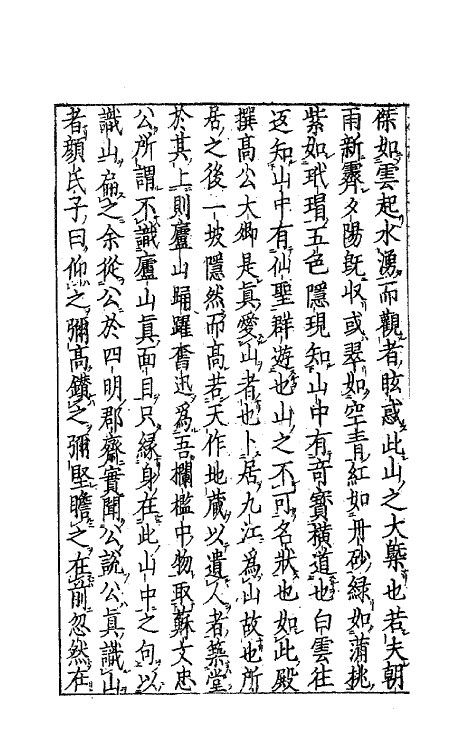 傑如雲起水湧而觀者眩惑此山之大槩也若夫朝
雨新霽夕陽旣収或翠如空青紅如丹砂緑如蒲桃
紫如玳瑁五色隱現知山中有竒寳横道也白雲往
返知山中有仙聖群遊也山之不可名狀也如此殿
撰髙公大卿是真愛山者也卜居九江為山故也所
居之後一坡隱然而髙若天作地蔵以遺人者築堂
於其上則廬山踊躍奮迅為吾欄檻中物取蘇文忠
公所謂不識廬山真面目只縁身在此山中之句以
識山扁之余從公於四明郡齋實聞公説公真識山
者顔氏子曰仰之彌髙鑚之彌堅瞻之在前忽然在